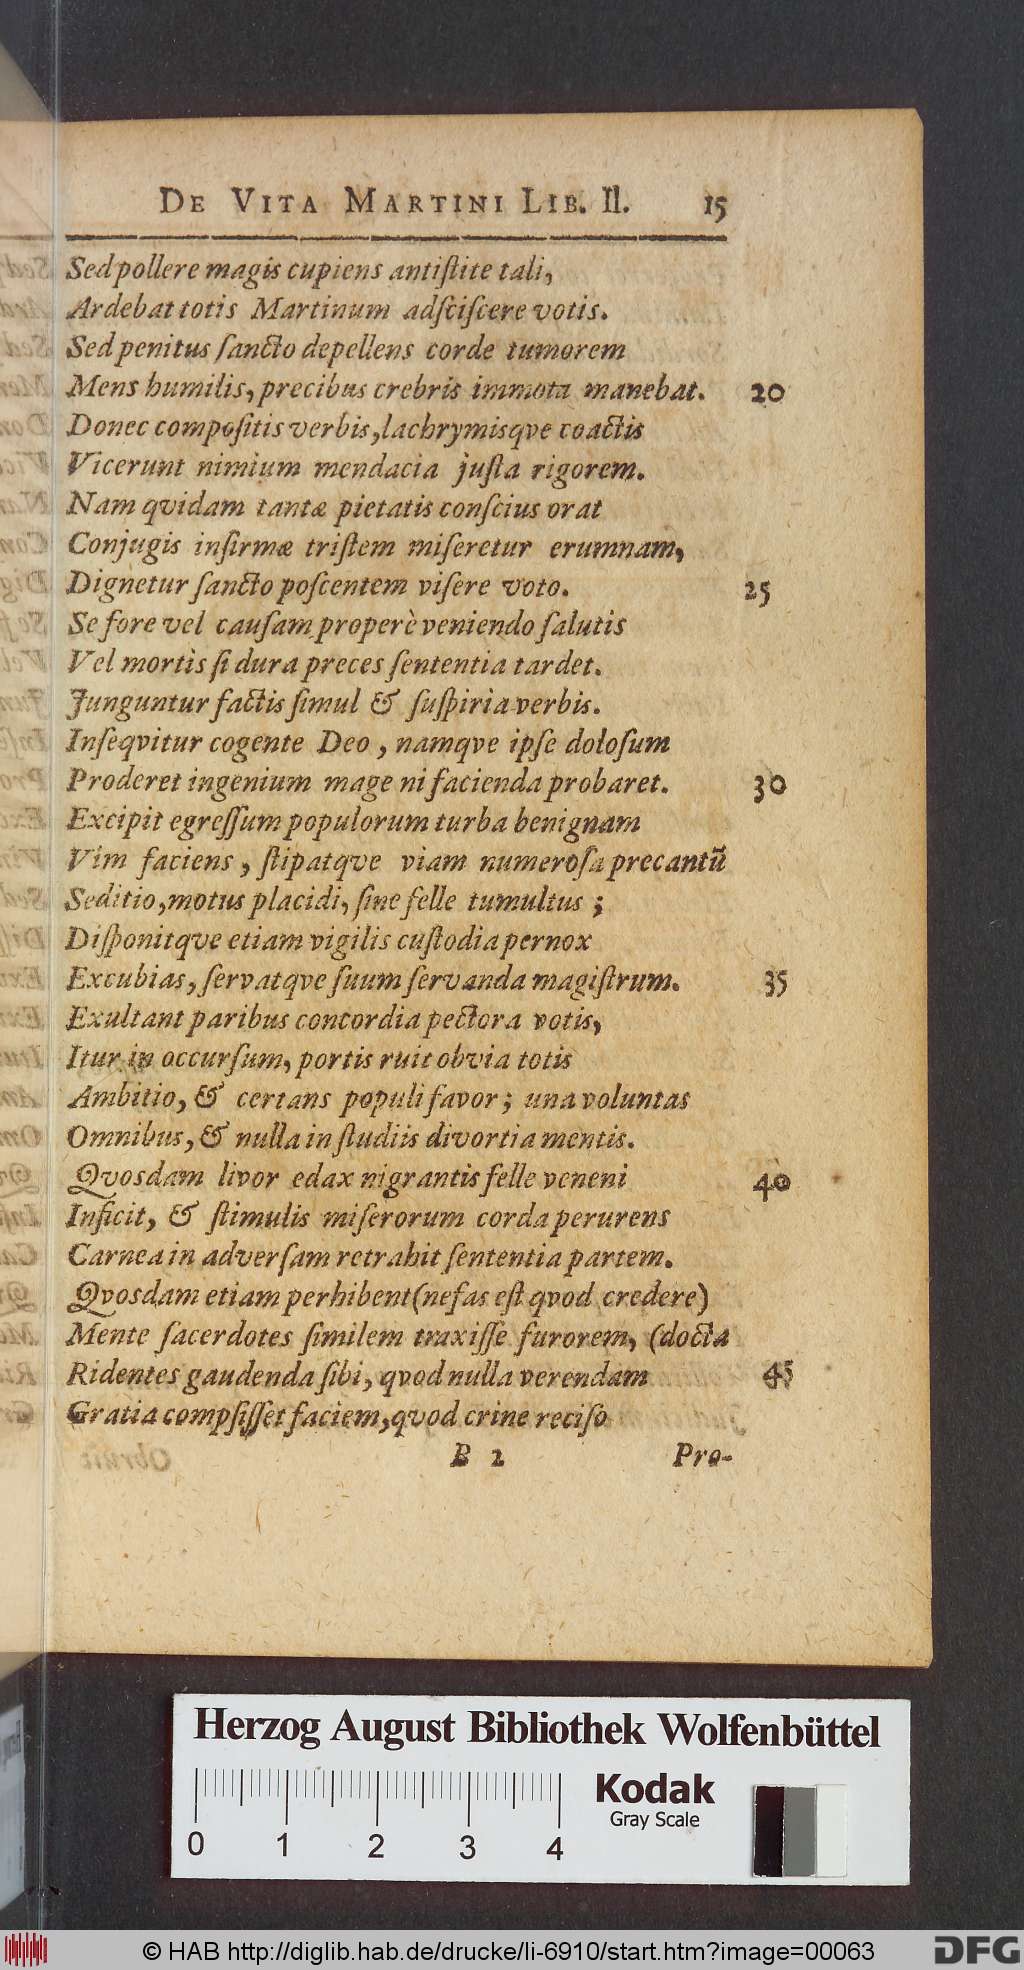 DE VITA MARTINI LIB. II. 15
Sed pollere magis cupiens antiſtite tali,
Ardebat totis Martinum adſciſcere votis.
Sed penitus ſancto depellens corde tumorem
Mens humilis, precibus crebris immota manebat. 20
Donec compoſitis verbis, lachrymisqve coactis
Vicerunt nimium mendacia juſta rigorem.
Nam qvidam tantæ pietatis conſcius orat
Conjugis infirmæ triſtem miſeretur erumnam,
Dignetur ſancto poſcentem viſere voto. 25
Se fore vel cauſam properè veniendo ſalutis
Vel mortis ſi dura preces ſententia tardet.
Junguntur factis ſimul & ſuſpiria verbis.
Inſeqvitur cogente Deo, namqve ipſe doloſum
Proderet ingenium mage ni facienda probaret. 30
Excipit egreſſum populorum turba benignam
Vim faciens, ſtipatqve viam numeroſa precantū
Seditio, motus placidi, ſine felle tumultus ;
Diſponitqve etiam vigilis cuſtodia pernox
Excubias, ſervatqve ſuum ſervanda magiſtrum. 35
Exultant paribus concordia pectora votis,
Itur in occurſum, portis ruit obvia totis
Ambitio, & certans populi favor ; una voluntas
Omnibus, & nulla in ſtudiis divortia mentis.
Qvosdam livor edax nigrantis felle veneni 40
Inficit, & ſtimulis miſerorum corda perurens
Carnea in adverſam retrahit ſententia partem.
Qvosdam etiam perhibent (nefas eſt qvod credere)
Mente ſacerdotes ſimilem traxiſſe furorem, (docta
Ridentes gaudenda ſibi, qvod nulla verendam 45
Gratia compſiſſet faciem, qvod crine reciſo
B 2 Pro-
Herzog August Bibliothek Wolfenbüttel
0 1 2 3 4
Kodak
Gray Scale
© HAB http://diglib.hab.de/drucke/li-6910/start.htm?image=00063
DFG